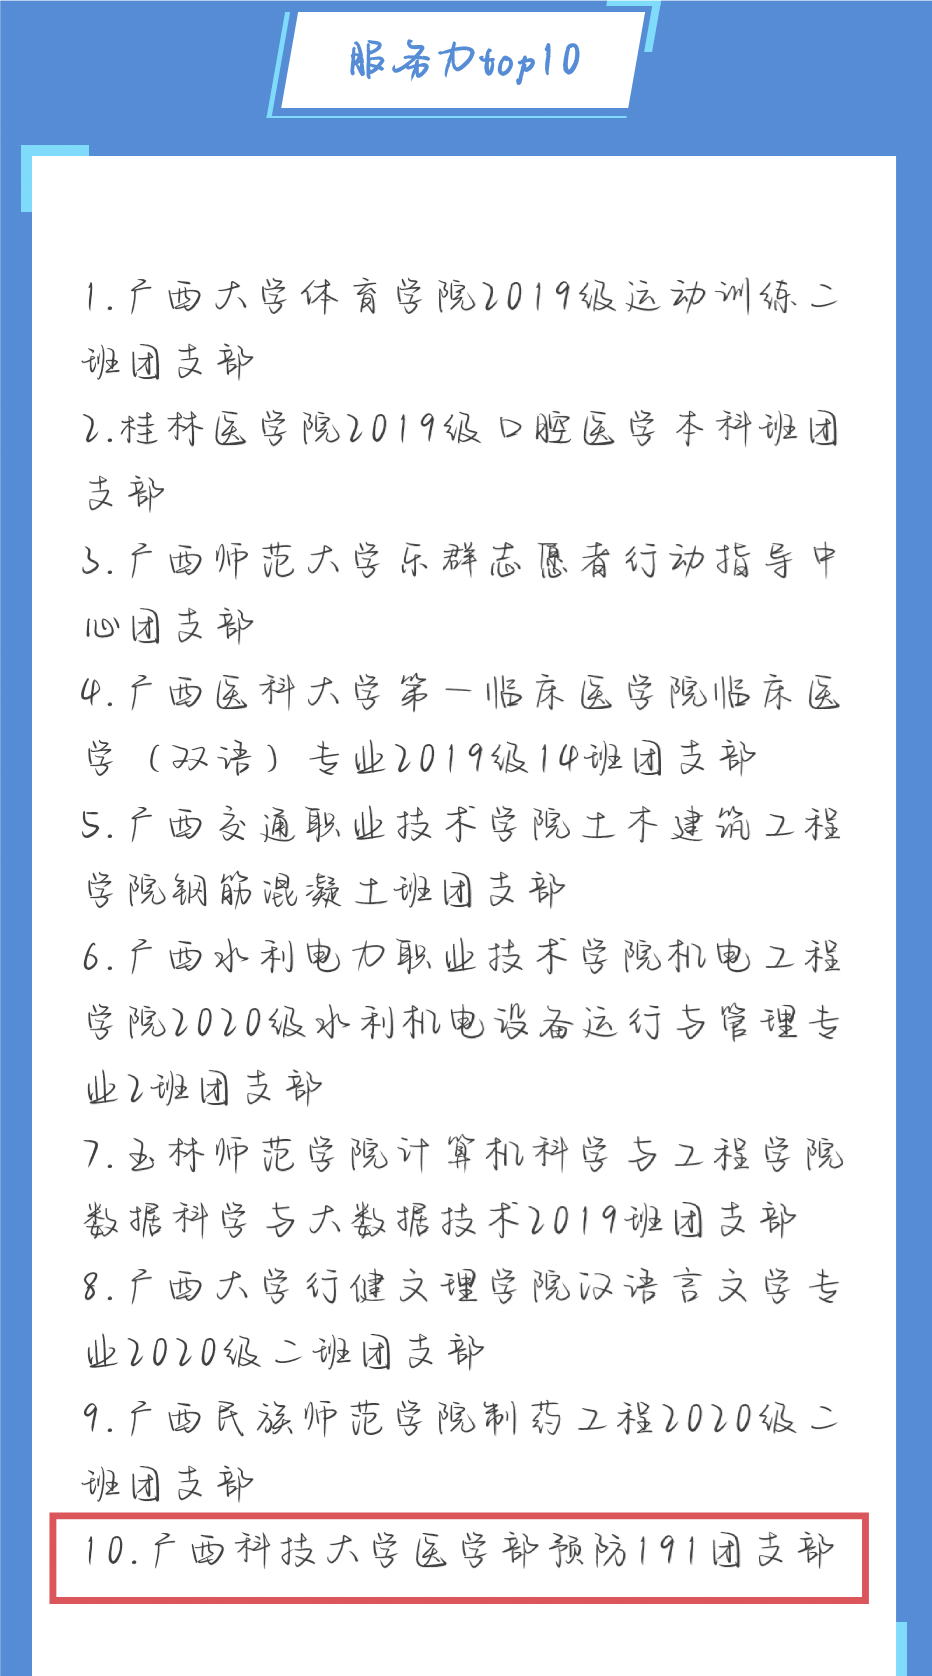 服务力top10
1.广西大学体育学院2019级运动训练二
班团支部
2.桂林医学院2019级口腔医学本科班团
支部
3.广西师范大学乐群志愿者行动指导中
心团支部
4.广西医科大学第一临床医学院临床医
学（双语）专业2019级14班团支部
5.广西交通职业技术学院土木建筑工程
学院钢筋混凝土班团支部
6.广西水利电力职业技术学院机电工程
学院2020级水利机电设备运行与管理专
业2班团支部
7.玉林师范学院计算机科学与工程学院
数据科学与大数据技术2019班团支部
8.广西大学行健文理学院汉语言文学专
业2020级二班团支部
9.广西民族师范学院制药工程2020级二
班团支部
10.广西科技大学医学部预防191团支部